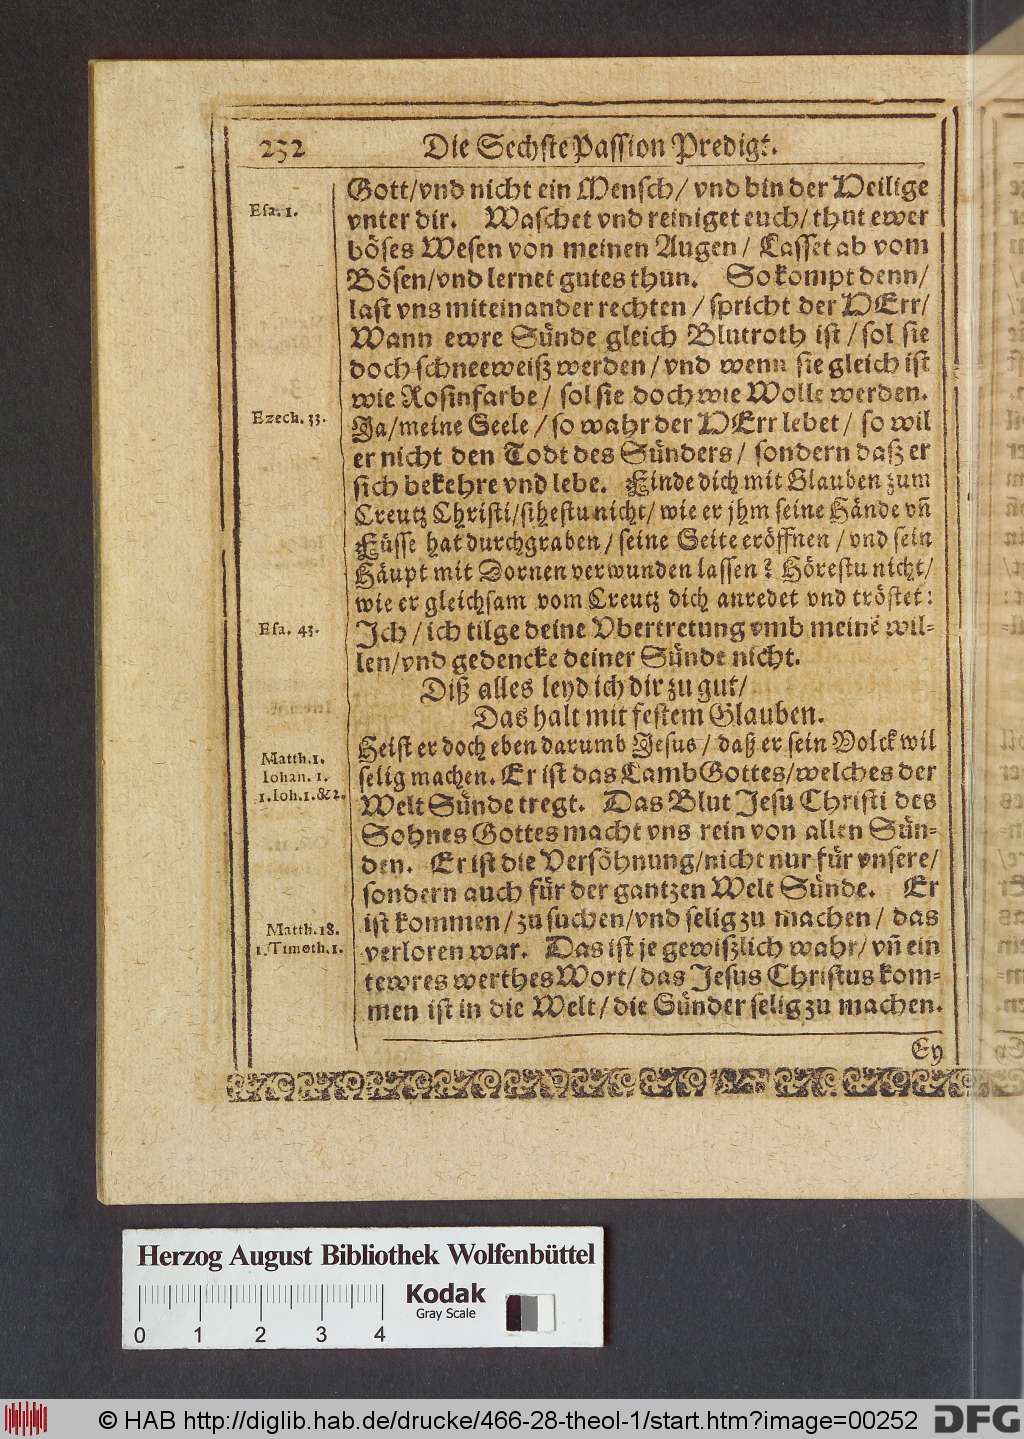 232
Die Sechste Passion Predigt.
Gott/vnd nicht ein Mensch/ vnd bin der Heilige
Esa. 1.
vnter dir. Waschet vnd reiniget euch/ thut ewer
böses Wesen von meinen Augen/ Lasset ab vom
Bösen/vnd lernet gutes thun. So kompt denn/
last vns miteinander rechten / spricht der HErr/
Wann ewre Sünde gleich Blutroth ist / sol sie
doch schneeweiß werden / vnd wenn sie gleich ist
wie Rosinfarbe/ sol sie doch wie Wolle werden.
Ezech. 33.
Ja/meine Seele / so wahr der HErr lebet / so wil
er nicht den Todt des Sünders/ sondern daß er
sich bekehre vnd lebe. Finde dich mit Glauben zum
Creutz Christi/sihestu nicht/ wie er jhm seine Hände vñ
Füsse hat durchgraben / seine Seite eröffnen / vnd sein
Häupt mit Dornen verwunden lassen? Hörestu nicht/
wie er gleichsam vom Creutz dich anredet vnd tröstet:
Esa. 43.
Ich / ich tilge deine Vbertretung vmb meine wil-
len/vnd gedencke deiner Sünde nicht.
Diß alles leyd ich dir zu gut/
Das halt mit festem Glauben.
Heist er doch eben darumb Jesus / daß er sein Volck wil
Matth. 1.
Iohan. 1.
1. Ioh. 1. & 2.
selig machen. Er ist das Lamb Gottes/welches der
Welt Sünde tregt. Das Blut Jesu Christi des
Sohnes Gottes macht vns rein von allen Sün-
den. Er ist die Versöhnung/nicht nur für vnsere/
sondern auch für der gantzen Welt Sünde. Er
Matth. 18.
1. Timoth. 1.
ist kommen / zu suchen/vnd selig zu machen / das
verloren war. Das ist je gewißlich wahr/ vñ ein
tewres werthes Wort/ das Jesus Christus kom-
men ist in die Welt/ die Sünder selig zu machen.
Ey
Herzog August Bibliothek Wolfenbüttel
Kodak
Gray Scale
0 1 2 3 4
© HAB http://diglib.hab.de/drucke/466-28-theol-1/start.htm?image=00252
DFG